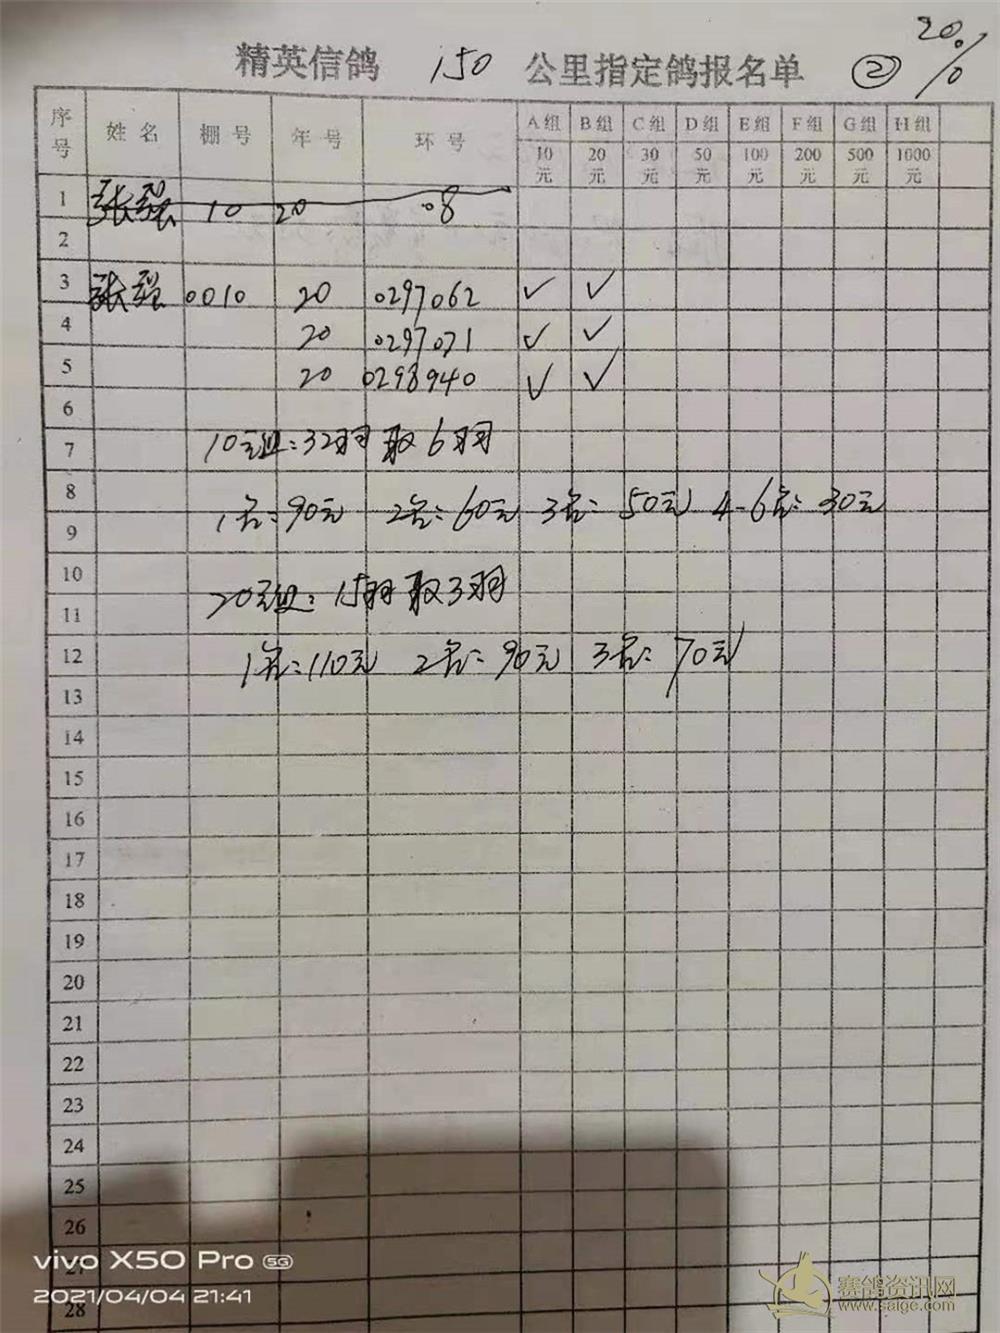 20%
精英信鸽 150 公里指定鸽报名单 ②
序号 姓名 棚号 年号 环号 A组 B组 C组 D组 E组 F组 G组 H组
10元 20元 30元 50元 100元 200元 500元 1000元
1 张强 10 20 08
2
3 张强 0010 20 0297062 ✓ ✓
4 20 0297071 ✓ ✓
5 20 0298940 ✓ ✓
6
7 10元组:32羽取6羽
8 1名:90元 2名:60元 3名:50元 4-6名:30元
9
10 20元组:15羽取3羽
11
12 1名:110元 2名:90元 3名:70元
13
14
15
16
17
18
19
20
21
22
23
24
25
26
27
28
vivo X50 Pro 5G
2021/04/04 21:41
赛鸽资讯网
www.saige.com